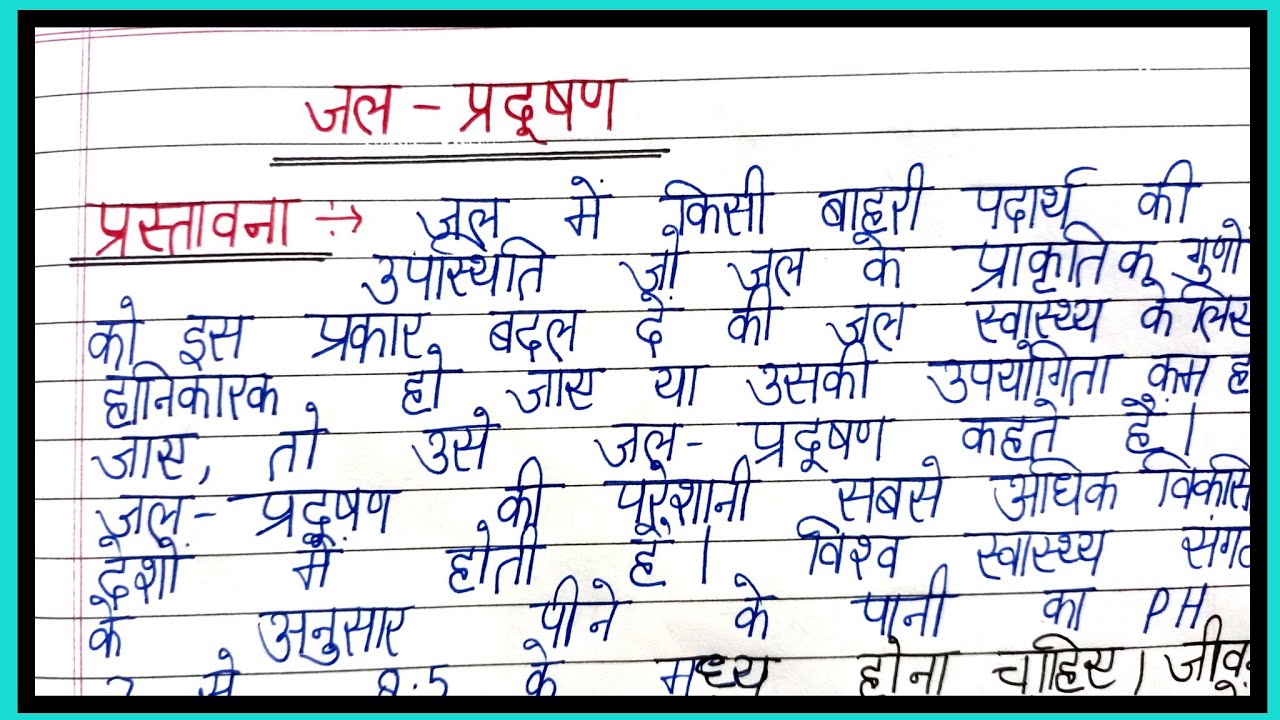 जल - प्रदूषण
प्रस्तावना ÷→ जल में किसी बाहरी पदार्थ की
उपस्थिति जो जल के प्राकृतिक गुणो
को इस प्रकार बदल दे की जल स्वास्थ्य के लिए
हानिकारक हो जाए या उसकी उपयोगिता कम ह
जाए, तो उसे जल- प्रदूषण कहते हैं।
जल- प्रदूषण की परेशानी सबसे अधिक विकसि
देशो में होती है। विश्व स्वास्थ्य संगठ
के अनुसार पीने के पानी का PH
7 से 8.5 के मध्य होना चाहिए। जीव